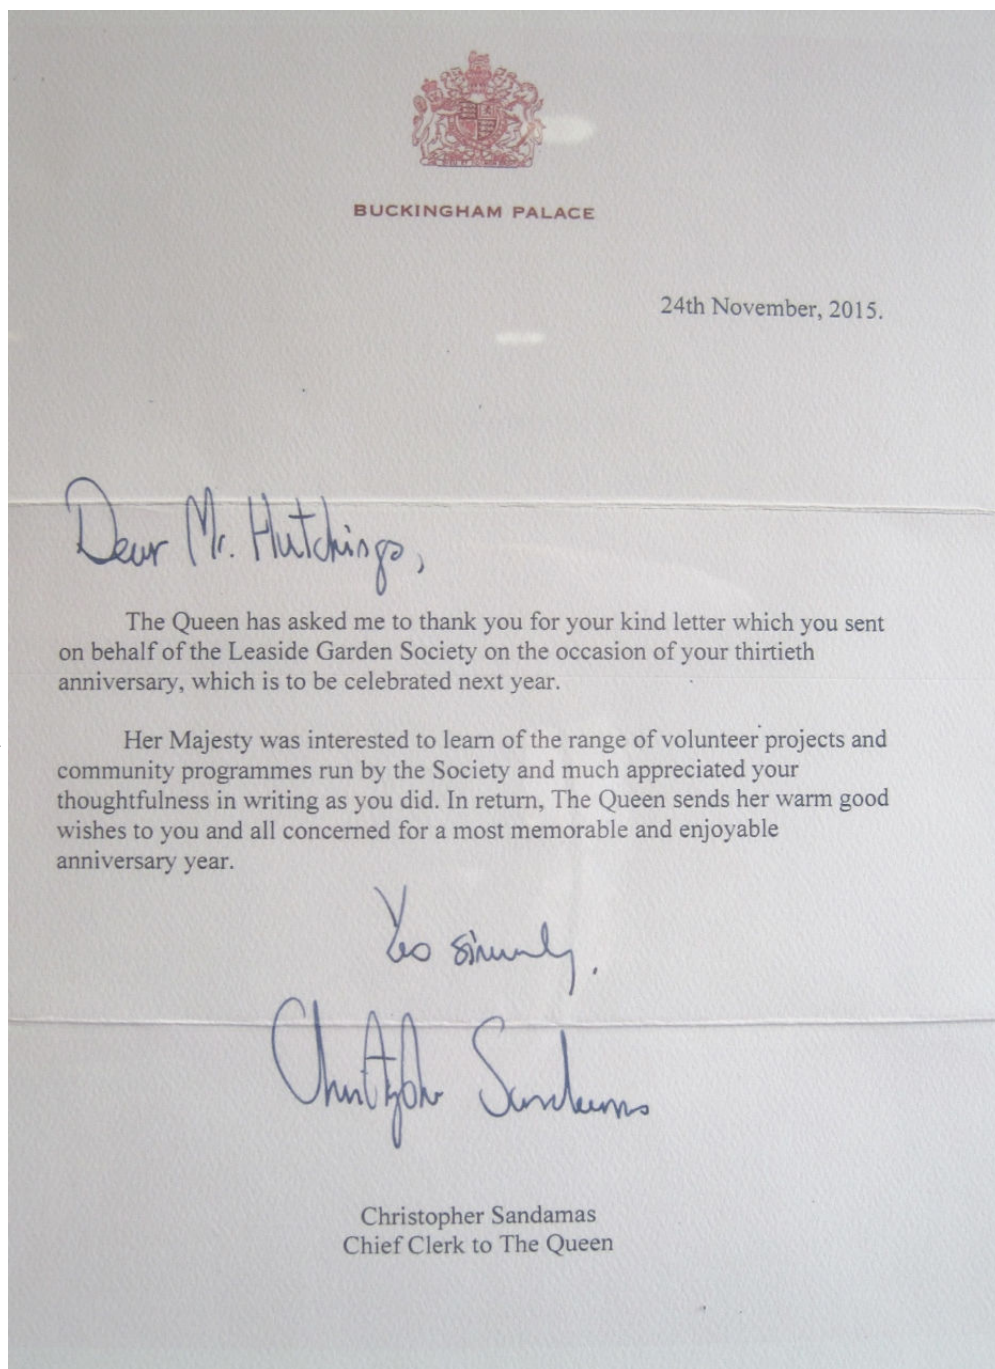 BUCKINGHAM PALACE
24th November, 2015.
Dear Mr. Hutchings,
The Queen has asked me to thank you for your kind letter which you sent
on behalf of the Leaside Garden Society on the occasion of your thirtieth
anniversary, which is to be celebrated next year.
Her Majesty was interested to learn of the range of volunteer projects and
community programmes run by the Society and much appreciated your
thoughtfulness in writing as you did. In return, The Queen sends her warm good
wishes to you and all concerned for a most memorable and enjoyable
anniversary year.
sincerely,
Christopher Sandamas
Christopher Sandamas
Chief Clerk to The Queen